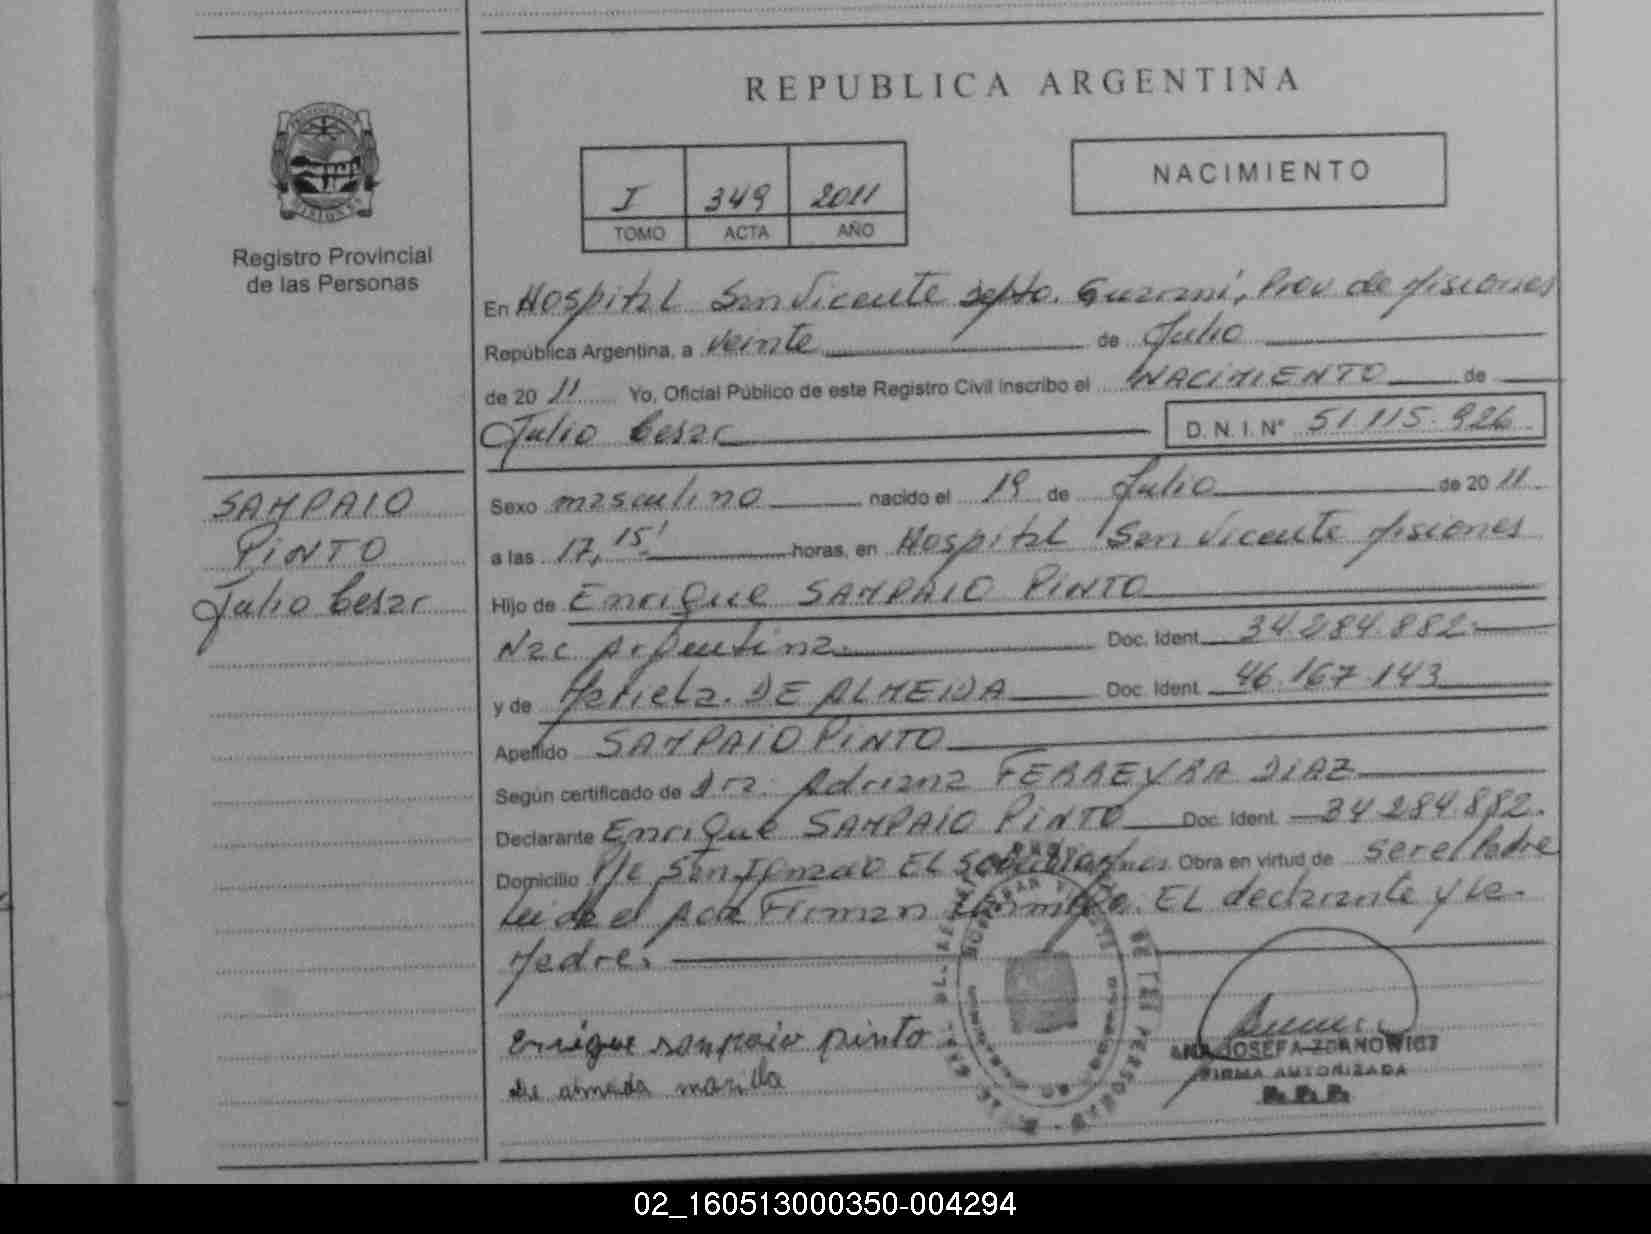 REPUBLICA ARGENTINA
NACIMIENTO
I 349 2011
TOMO ACTA AÑO
Registro Provincial
de las Personas
En Hospital San Vicente Depto. Guarani, Prov de Misiones
República Argentina, a veinte de Julio
de 20 11 Yo, Oficial Público de este Registro Civil inscribo el NACIMIENTO de
Julio Cesar D. N. I. N° 51.115.926
SAMPAIO
PINTO
Julio Cesar
Sexo masculino nacido el 19 de Julio de 20 11
a las 17,15' horas, en Hospital San Vicente Misiones
Hijo de Enrique SAMPAIO PINTO
Nac Argentina Doc. Ident. 34.284.882
y de Mariela DE ALMEIDA Doc. Ident 46.167.143
Apellido SAMPAIO PINTO
Según certificado de Dra. Adriana FERREYRA DIAZ
Declarante Enrique SAMPAIO PINTO Doc. Ident. 34.284.882.
Domicilio Pje San Ignacio EL Obra en virtud de ser el Padre
Leida el Acta Firman EL declarante y La
Madre.
Enrique sampaio pinto
De almeda
ANA JOSEFA ZDANOWICZ
FIRMA AUTORIZADA
R.P.P.
02_160513000350-004294